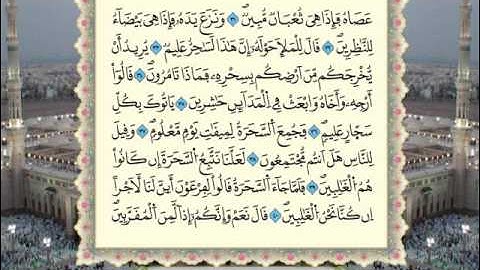 عَصَاهُ فَإِذَا هِيَ ثُعْبَانٌ مُّبِينٌ ٣٢ وَنَزَعَ يَدَهُ فَإِذَا هِيَ بَيْضَاءُ
لِلنَّاظِرِينَ ٣٣ قَالَ لِلْمَلَإِ حَوْلَهُ إِنَّ هَٰذَا لَسَاحِرٌ عَلِيمٌ ٣٤ يُرِيدُ أَن
يُخْرِجَكُم مِّنْ أَرْضِكُم بِسِحْرِهِ فَمَاذَا تَأْمُرُونَ ٣٥ قَالُوا
أَرْجِهْ وَأَخَاهُ وَابْعَثْ فِي الْمَدَائِنِ حَاشِرِينَ ٣٦ يَأْتُوكَ بِكُلِّ
سَحَّارٍ عَلِيمٍ ٣٧ فَجُمِعَ السَّحَرَةُ لِمِيقَاتِ يَوْمٍ مَّعْلُومٍ ٣٨ وَقِيلَ
لِلنَّاسِ هَلْ أَنتُم مُّجْتَمِعُونَ ٣٩ لَعَلَّنَا نَتَّبِعُ السَّحَرَةَ إِن كَانُوا
هُمُ الْغَالِبِينَ ٤٠ فَلَمَّا جَاءَ السَّحَرَةُ قَالُوا لِفِرْعَوْنَ أَئِنَّ لَنَا لَأَجْرًا
إِن كُنَّا نَحْنُ الْغَالِبِينَ ٤١ قَالَ نَعَمْ وَإِنَّكُمْ إِذًا لَّمِنَ الْمُقَرَّبِينَ